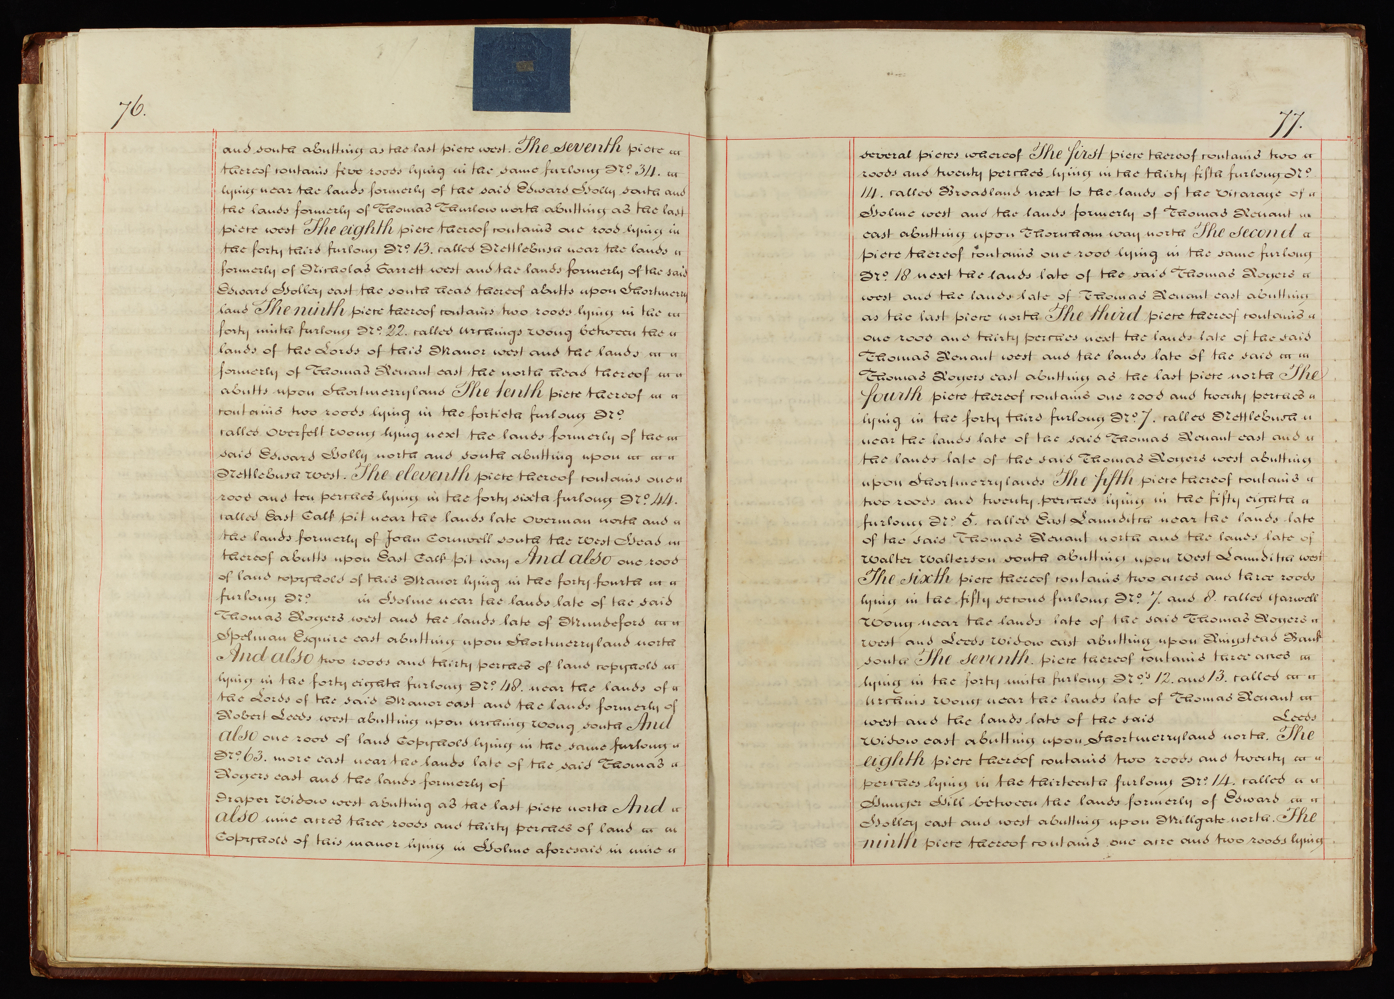 76.
and south abutting as the last piece west. The seventh piece
thereof contains five roods lying in the same furlong No. 34.
lying near the lands formerly of the said Edward Holly south and
the lands formerly of Thomas Thurlow north abutting as the last
piece west The eighth piece thereof contains one rood lying in
the forty third furlong No. 13. called Nettlebush near the lands
formerly of Nicholas Garrett west and the lands formerly of the said
Edward Holley east the south head thereof abutts upon Shortmerry
land The ninth piece thereof contains two roods lying in the
forty ninth furlong No. 22. called Urchings Wong between the
lands of the Lords of this Manor west and the lands
formerly of Thomas Renant east the north head thereof
abutts upon Shortmerryland The tenth piece thereof
contains two roods lying in the fortieth furlong No.
called Overfelt Wong lying next the lands formerly of the
said Edward Holly north and south abutting upon
Nettlebush West. The eleventh piece thereof contains one
rood and ten perches lying in the forty sixth furlong No. 44.
called East Calf pit near the lands late Overman north and
the lands formerly of John Cornwell south the West Head
thereof abutts upon East Calf pit way And also one rood
of land copyhold of this Manor lying in the forty fourth
furlong No. in Holme near the lands late of the said
Thomas Rogers west and the lands late of Mundeford
Spelman Esquire east abutting upon Shortmerryland north
And also two roods and thirty perches of land copyhold
lying in the forty eighth furlong No. 48. near the lands of
the Lords of the said Manor east and the lands formerly of
Robert Leeds west abutting upon Urching Wong south And
also one rood of land Copyhold lying in the same furlong
No. 63. more east near the lands late of the said Thomas
Rogers east and the lands formerly of
Draper Widow west abutting as the last piece north And
also nine acres three roods and thirty perches of land
Copyhold of this manor lying in Holme aforesaid in nine
77.
several pieces whereof The first piece thereof contains two
roods and twenty perches lying in the thirty fifth furlong No.
14. called Broadland next to the lands of the Vicarage of
Holme west and the lands formerly of Thomas Renant
east abutting upon Thornham way north The second
piece thereof contains one rood lying in the same furlong
No. 18 next the lands late of the said Thomas Rogers
west and the lands late of Thomas Renant east abutting
as the last piece north The third piece thereof contains
one rood and thirty perches next the lands late of the said
Thomas Renant west and the lands late of the said
Thomas Rogers east abutting as the last piece north The
fourth piece thereof contains one rood and twenty perches
lying in the forty third furlong No. 7. called Nettlebush
near the lands late of the said Thomas Renant east and
the lands late of the said Thomas Rogers west abutting
upon Shortmerrylands The fifth piece thereof contains
two roods and twenty perches lying in the fifty eighth
furlong No. 5. called East Lamditch near the lands late
of the said Thomas Renant north and the lands late of
Walter Walterson south abutting upon West Lamditch west
The sixth piece thereof contains two acres and three roods
lying in the fifty second furlong No. 7. and 8. called Yarwell
Wong near the lands late of the said Thomas Rogers
west and Leeds Widow east abutting upon Ringstead Bank
south The seventh piece thereof contains three acres
lying in the forty ninth furlong Nos. 12. and 13. called
Urchins Wong near the lands late of Thomas Renant
west and the lands late of the said Leeds
Widow east abutting upon Shortmerryland north. The
eighth piece thereof contains two roods and twenty
perches lying in the thirteenth furlong No. 14. called
Hunger Hill between the lands formerly of Edward
Holley east and west abutting upon Millgate north. The
ninth piece thereof contains one acre and two roods lying